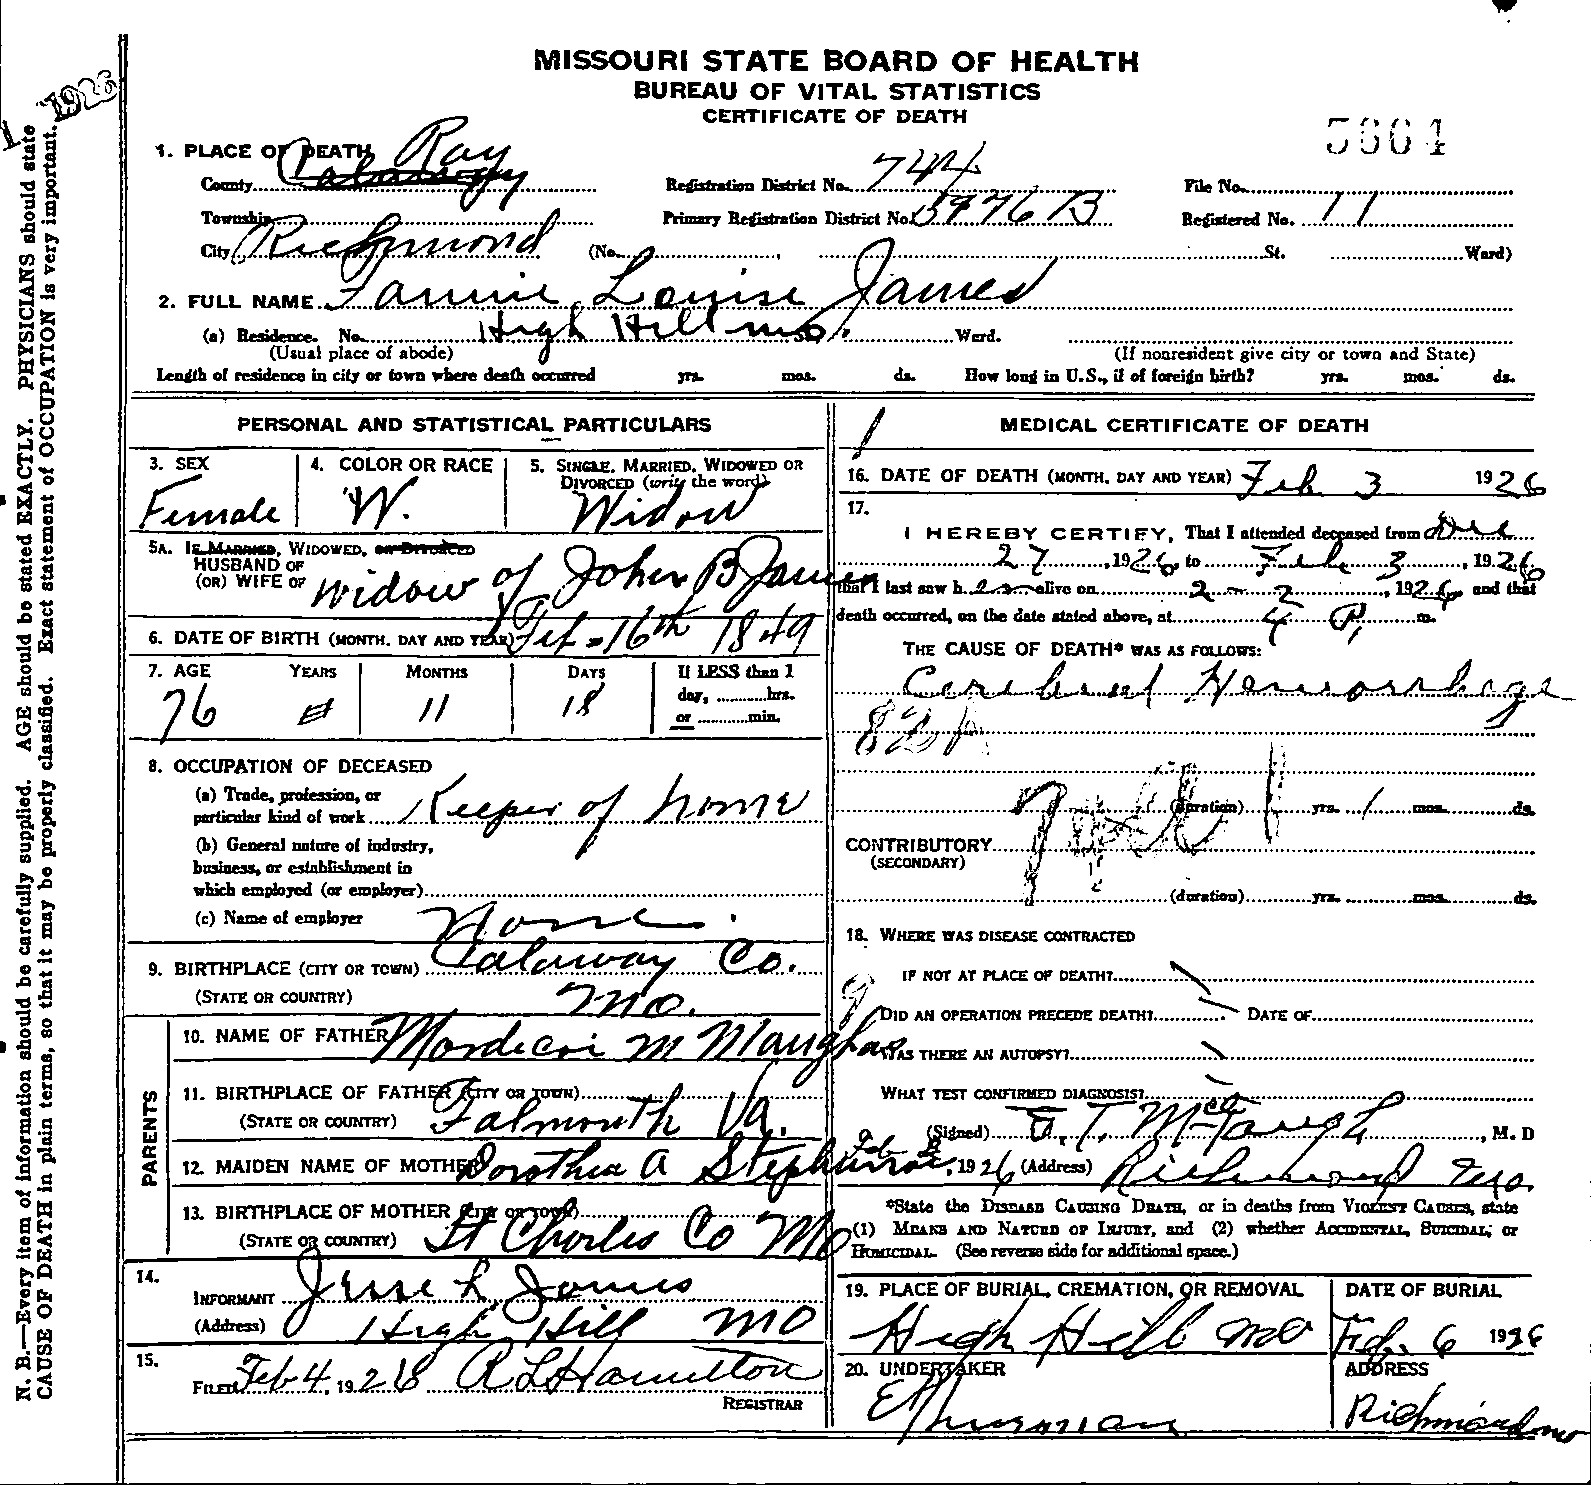 MISSOURI STATE BOARD OF HEALTH
BUREAU OF VITAL STATISTICS
CERTIFICATE OF DEATH
5664
1. PLACE OF DEATH Ray
County Calaway
Registration District No. 744
File No.
Township
Primary Registration District No. 5976 B
Registered No. 11
City Richmond (No. , St. Ward)
2. FULL NAME Fannie Louise James
(a) Residence. No. High Hill Mo. Ward.
(Usual place of abode) (If nonresident give city or town and State)
Length of residence in city or town where death occurred yrs. mos. ds. How long in U.S., if of foreign birth? yrs. mos. ds.
PERSONAL AND STATISTICAL PARTICULARS
3. SEX
Female
4. COLOR OR RACE
W.
5. SINGLE, MARRIED, WIDOWED OR
DIVORCED (write the word)
Widow
5A. IF MARRIED, WIDOWED, OR DIVORCED
HUSBAND OF
(OR) WIFE OF widow of John B James
6. DATE OF BIRTH (MONTH, DAY AND YEAR) Feb - 16th 1849
7. AGE YEARS MONTHS DAYS If LESS than 1
day, hrs.
or min.
76 11 18
8. OCCUPATION OF DECEASED
(a) Trade, profession, or
particular kind of work Keeper of home
(b) General nature of industry,
business, or establishment in
which employed (or employer)
(c) Name of employer None.
9. BIRTHPLACE (CITY OR TOWN) Calaway Co.
(STATE OR COUNTRY) Mo.
PARENTS
10. NAME OF FATHER Mordecai M Maughas
11. BIRTHPLACE OF FATHER (CITY OR TOWN)
(STATE OR COUNTRY) Falmouth Va.
12. MAIDEN NAME OF MOTHER Dorothea A
13. BIRTHPLACE OF MOTHER (CITY OR TOWN)
(STATE OR COUNTRY) St Charles Co Mo
14.
INFORMANT Jesse L James
(Address) High Hill MO
15.
FILED Feb 4, 1926 R L Hamilton
REGISTRAR
MEDICAL CERTIFICATE OF DEATH
16. DATE OF DEATH (MONTH, DAY AND YEAR) Feb 3 1926
17.
I HEREBY CERTIFY, That I attended deceased from Dec
27, 1926 to Feb 3, 1926
that I last saw her alive on 2 - 2, 1926 and that
death occurred, on the date stated above, at 4 P. m.
THE CAUSE OF DEATH* WAS AS FOLLOWS:
Cerebral Hemorrhage
82A
(duration) yrs. 1 mos. ds.
CONTRIBUTORY
(SECONDARY)
(duration) yrs. mos. ds.
18. WHERE WAS DISEASE CONTRACTED
IF NOT AT PLACE OF DEATH?
DID AN OPERATION PRECEDE DEATH? DATE OF
WAS THERE AN AUTOPSY?
WHAT TEST CONFIRMED DIAGNOSIS?
(Signed) McGaugh, M. D
Feb 1926 (Address) Richmond Mo.
*State the DISEASE CAUSING DEATH, or in deaths from VIOLENT CAUSES, state
(1) MEANS AND NATURE OF INJURY, and (2) whether ACCIDENTAL, SUICIDAL, or
HOMICIDAL. (See reverse side for additional space.)
19. PLACE OF BURIAL, CREMATION, OR REMOVAL
High Hill Mo
DATE OF BURIAL
Feb. 6 1926
20. UNDERTAKER
Thurman
ADDRESS
Richmond Mo
N. B.—Every item of information should be carefully supplied. AGE should be stated EXACTLY. PHYSICIANS should state
CAUSE OF DEATH in plain terms, so that it may be properly classified. Exact statement of OCCUPATION is very important.
1926